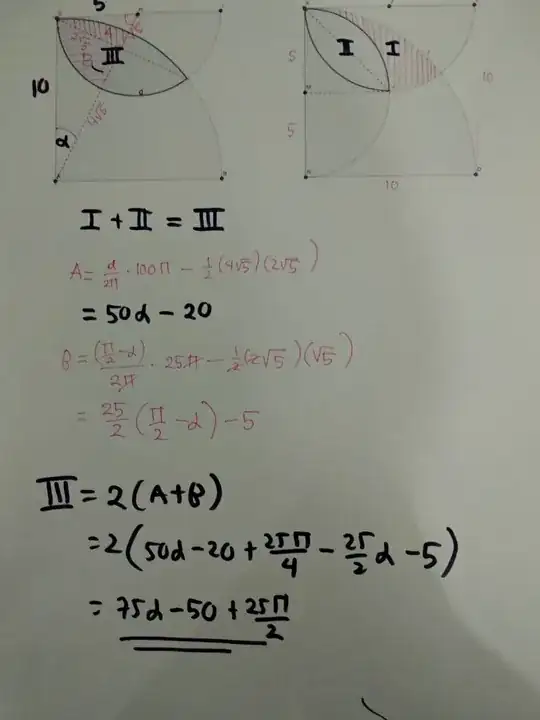 5
10
III
α
4√5
I
II
5
5
10
10
I + II = III
A = α/2π · 100π − 1/2 (4√5)(2√5)
= 50α − 20
B = (π/2 − α)/2π · 25π − 1/2 (2√5)(√5)
= 25/2 (π/2 − α) − 5
III = 2(A+B)
= 2(50α − 20 + 25π/4 − 25/2 α − 5)
= 75α − 50 + 25π/2